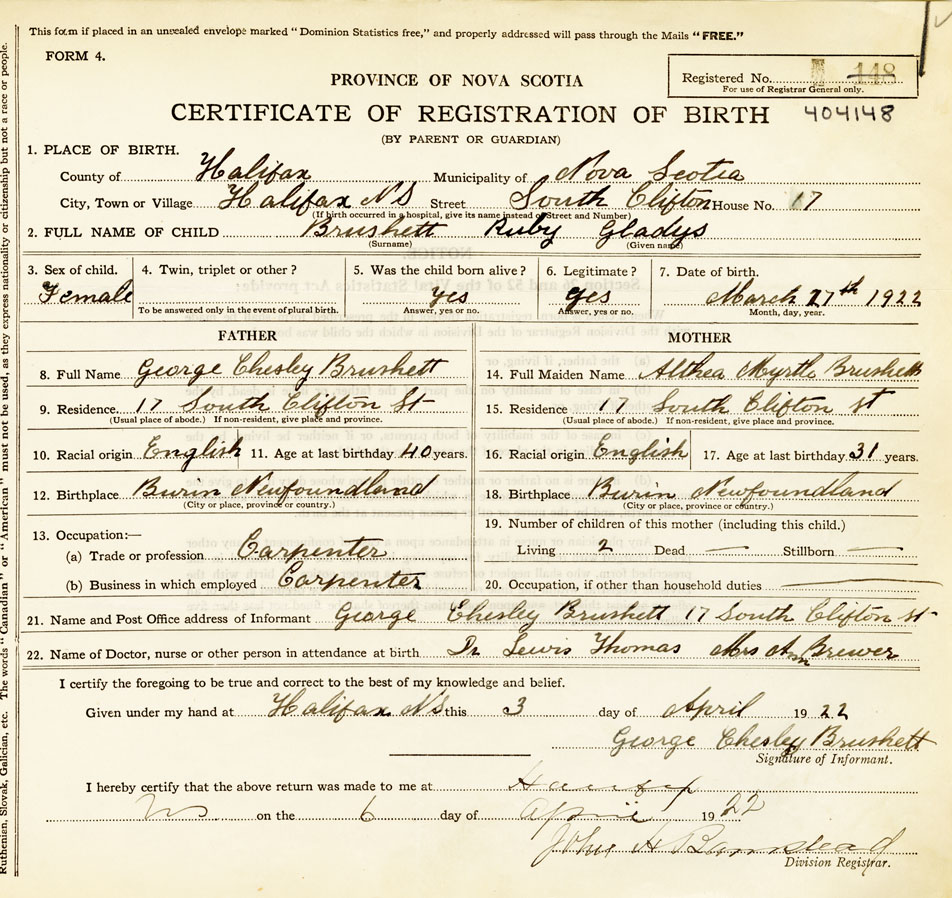 This form if placed in an unsealed envelope marked "Dominion Statistics free," and properly addressed will pass through the Mails "FREE."
FORM 4.
Registered No. 148
For use of Registrar General only.
PROVINCE OF NOVA SCOTIA
CERTIFICATE OF REGISTRATION OF BIRTH 404148
(BY PARENT OR GUARDIAN)
1. PLACE OF BIRTH.
County of Halifax Municipality of Nova Scotia
City, Town or Village Halifax NS Street South Clifton House No. 17
(If birth occurred in a hospital, give its name instead of Street and Number)
2. FULL NAME OF CHILD Brushett Ruby Gladys
(Surname) (Given name)
3. Sex of child. 4. Twin, triplet or other? 5. Was the child born alive? 6. Legitimate? 7. Date of birth.
Female yes yes March 27th 1922
To be answered only in the event of plural birth. Answer, yes or no. Answer, yes or no. Month, day, year.
FATHER MOTHER
8. Full Name George Chesley Brushett 14. Full Maiden Name Althea Myrtle Brushett
9. Residence 17 South Clifton St 15. Residence 17 South Clifton st
(Usual place of abode.) If non-resident, give place and province. (Usual place of abode.) If non-resident, give place and province.
10. Racial origin English 11. Age at last birthday 40 years. 16. Racial origin English 17. Age at last birthday 31 years.
12. Birthplace Burin Newfoundland 18. Birthplace Burin Newfoundland
(City or place, province or country.) (City or place, province or country.)
13. Occupation:— 19. Number of children of this mother (including this child.)
(a) Trade or profession Carpenter Living 2 Dead — Stillborn —
(b) Business in which employed Carpenter 20. Occupation, if other than household duties —
21. Name and Post Office address of Informant George Chesley Brushett 17 South Clifton st
22. Name of Doctor, nurse or other person in attendance at birth Dr Lewis Thomas Mrs Brewer
I certify the foregoing to be true and correct to the best of my knowledge and belief.
Given under my hand at Halifax NS this 3 day of April 1922
George Chesley Brushett
Signature of Informant.
I hereby certify that the above return was made to me at
NS on the 6 day of April 1922
John H
Division Registrar.
Ruthenian, Slovak, Galician, etc. The words "Canadian" or "American" must not be used, as they express nationality or citizenship but not a race or people.